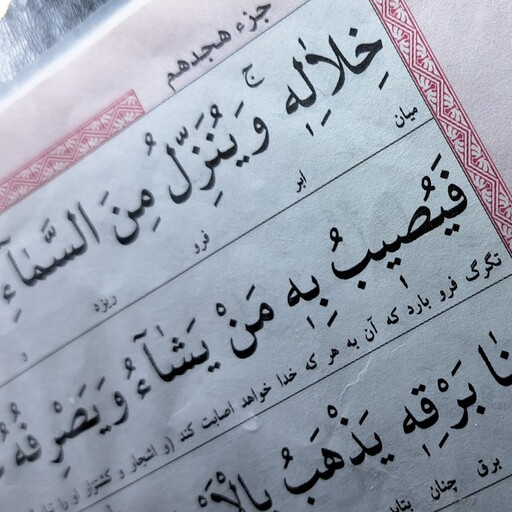 جزء هجدهم
خِلَالِهِ ۚ وَيُنَزِّلُ مِنَ السَّمَاءِ
میان ابر فرو ریزد و
فَيُصِيبُ بِهِ مَنْ يَشَاءُ وَيَصْرِفُهُ
تگرگ فرو بارد که آن به هر که خدا خواهد اصابت کند (و اشجار و کشتزار او را
نَا بَرْقِهِ يَذْهَبُ بِالْأَ
برق چنان بتابد